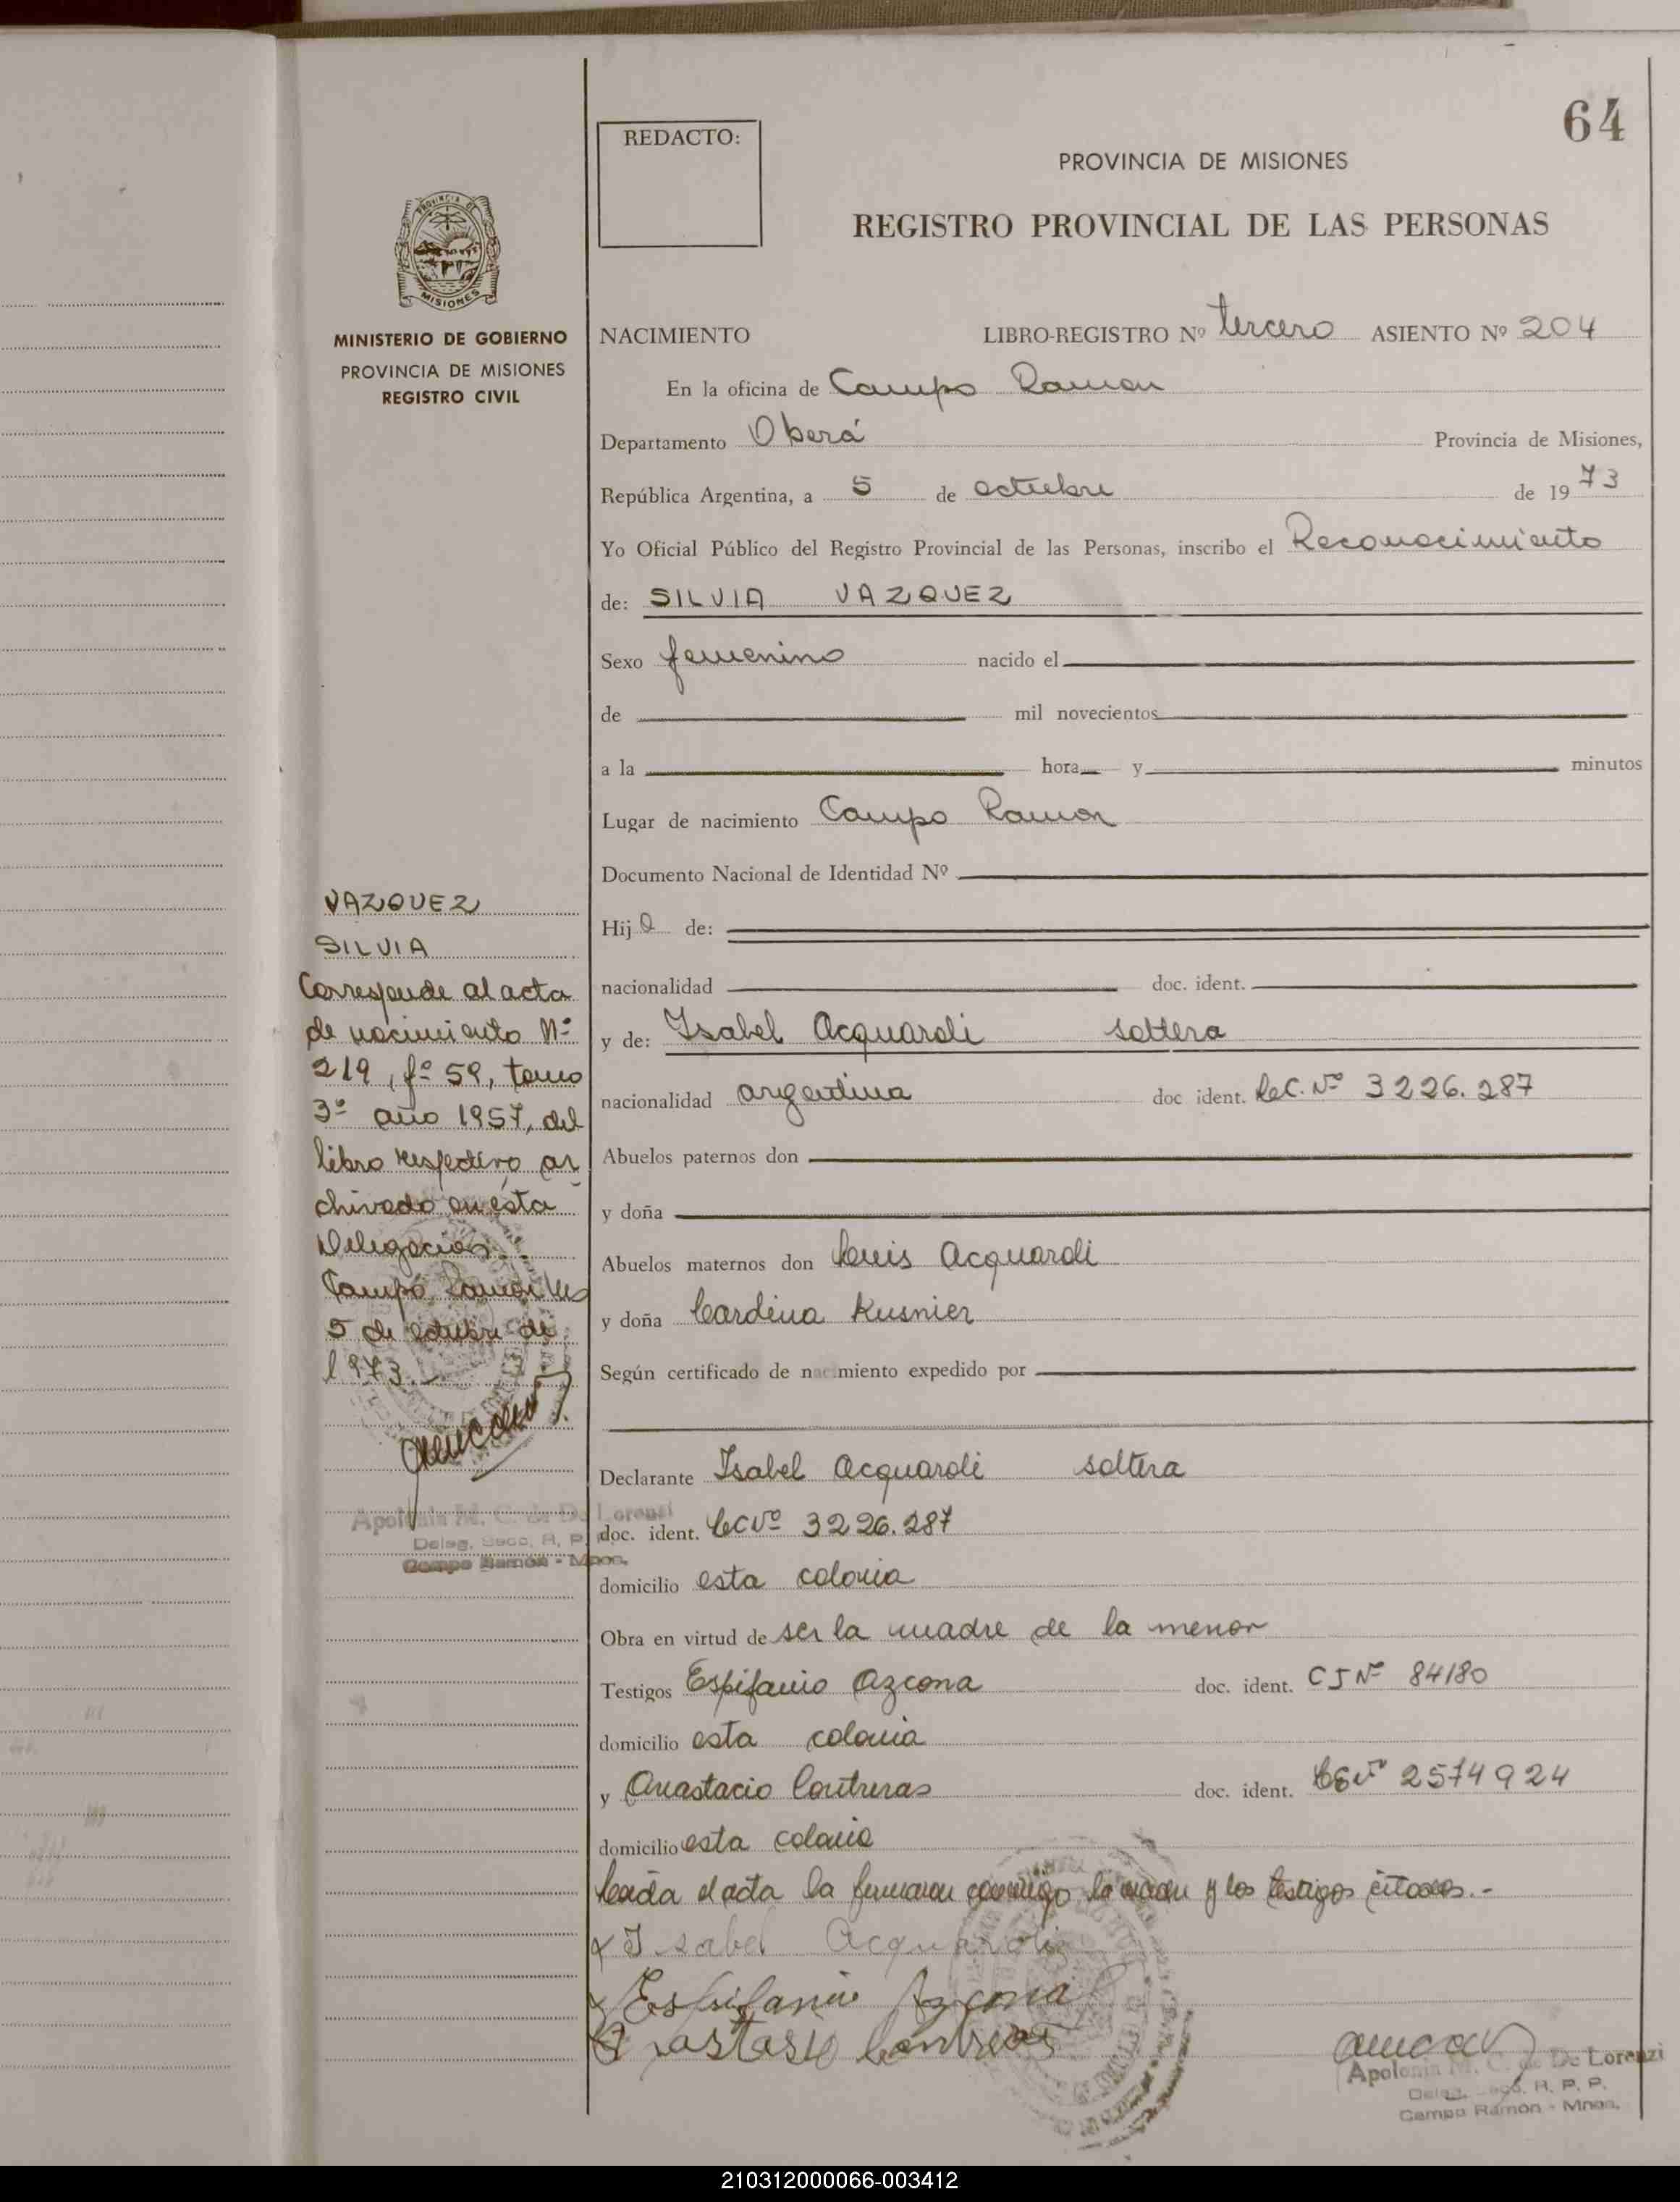 64
REDACTO:
PROVINCIA DE MISIONES
REGISTRO PROVINCIAL DE LAS PERSONAS
PROVINCIA DE
MISIONES
MINISTERIO DE GOBIERNO
PROVINCIA DE MISIONES
REGISTRO CIVIL
NACIMIENTO LIBRO-REGISTRO Nº tercero ASIENTO Nº 204
En la oficina de Campo Ramon
Departamento Oberá Provincia de Misiones,
República Argentina, a 5 de octubre de 1973
Yo Oficial Público del Registro Provincial de las Personas, inscribo el Reconocimiento
de: SILVIA VAZQUEZ
Sexo femenino nacido el
de mil novecientos
a la hora y minutos
Lugar de nacimiento Campo Ramon
Documento Nacional de Identidad Nº
Hija de:
nacionalidad doc. ident.
y de: Isabel Acquaroli soltera
nacionalidad argentina doc ident. LeC. Nº 3226.287
Abuelos paternos don
y doña
Abuelos maternos don Luis Acquaroli
y doña Cardina Kusnier
Según certificado de nacimiento expedido por
Declarante Isabel Acquaroli soltera
doc. ident. LCNº 3226.287
domicilio esta colonia
Obra en virtud de ser la madre de la menor
Testigos Espifanio Azcona doc. ident. CI Nº 84180
domicilio esta colonia
y Anastacio Contreras doc. ident. Nº 2574924
domicilio esta colonia
Leida el acta la firmaron conmigo la madre y los testigos citados.-
x Isabel Acquaroli
x Espifanio Azcona
Anastasio Contreras
Apolonia M. C. de De Lorenzi
Deleg. Secc. R. P. P.
Campo Ramón - Mnes.
VAZQUEZ
SILVIA
Corresponde al acta
de nacimiento Nº
219, fº 59, tomo
3º año 1957, del
libro respectivo ar
chivado en esta
Delegacion.
Campo Ramon Mes
5 de octubre de
1973.-
Apolonia M. C. de De Lorenzi
Deleg. Secc. R. P. P.
Campo Ramón - Mnes.
210312000066-003412